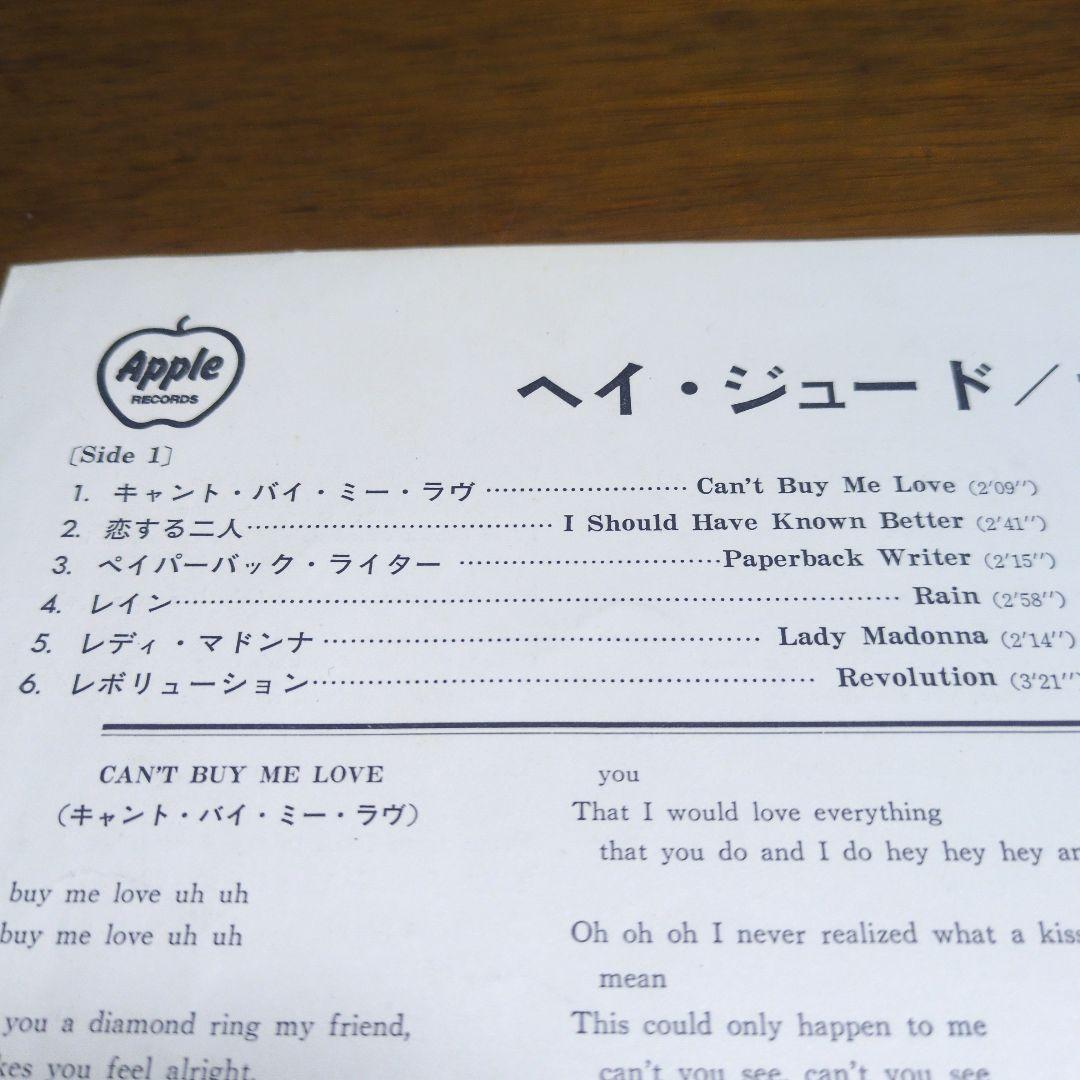 Apple
RECORDS
ヘイ・ジュード／
[Side 1]
1. キャント・バイ・ミー・ラヴ ························ Can't Buy Me Love (2′09″)
2. 恋する二人·································· I Should Have Known Better (2′41″)
3. ペイパーバック・ライター ······························Paperback Writer (2′15″)
4. レイン················································································ Rain (2′58″)
5. レディ・マドンナ ················································ Lady Madonna (2′14″)
6. レボリューション························································ Revolution (3′21″)
CAN'T BUY ME LOVE
(キャント・バイ・ミー・ラヴ)
buy me love uh uh
buy me love uh uh
you a diamond ring my friend,
you feel alright.
you
That I would love everything
that you do and I do hey hey hey
Oh oh oh I never realized what a kiss
mean
This could only happen to me
can't you see, can't you see